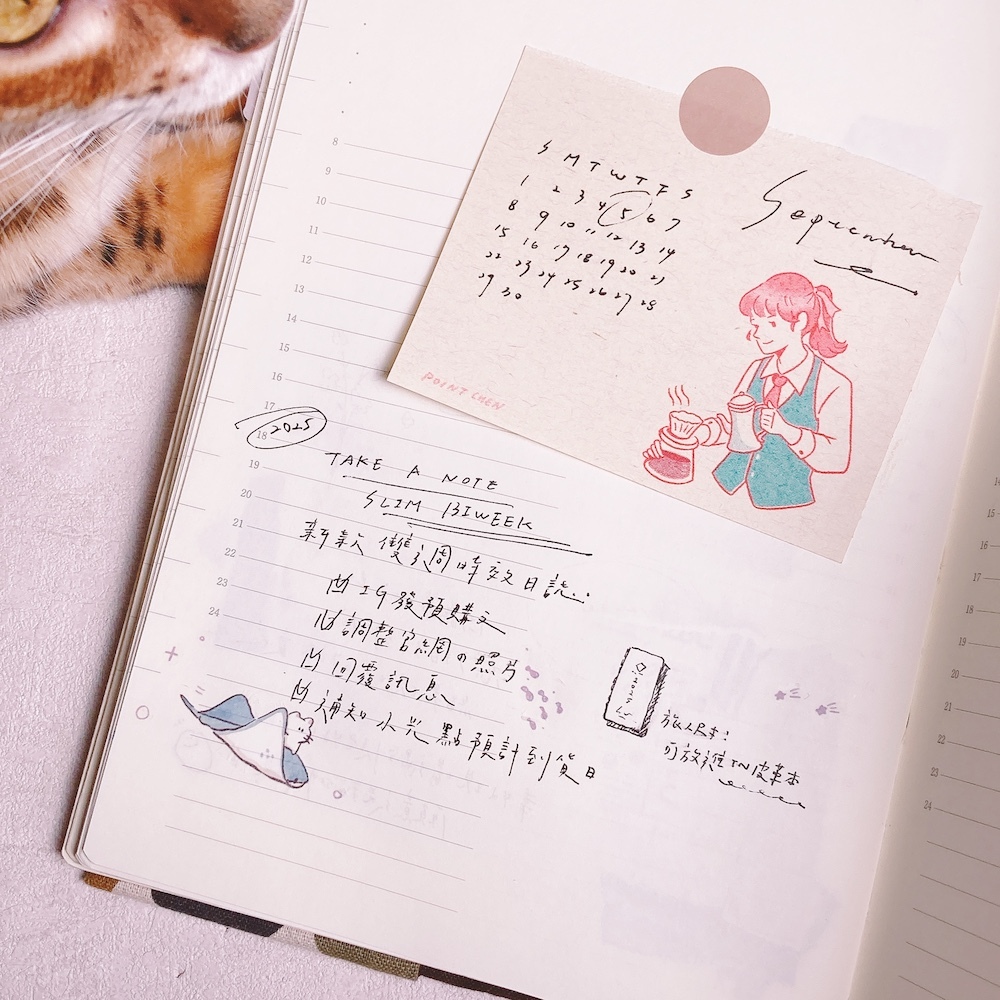 September
S M T W T F S
1 2 3 4 5 6 7
8 9 10 11 12 13 14
15 16 17 18 19 20 21
22 23 24 25 26 27 28
29 30
POINT CHEN
8
9
10
11
12
13
14
15
16
17
18
19
20
21
22
23
24
2025
TAKE A NOTE
SLIM BIWEEK
新款 雙週時效日誌
IG發預購文
調整官網の照片
回覆訊息
補知小光點預計到貨日
2025
旅人尺寸!
可放進TN皮革本
14
15
16
17
18
19
20
21
22
23
24